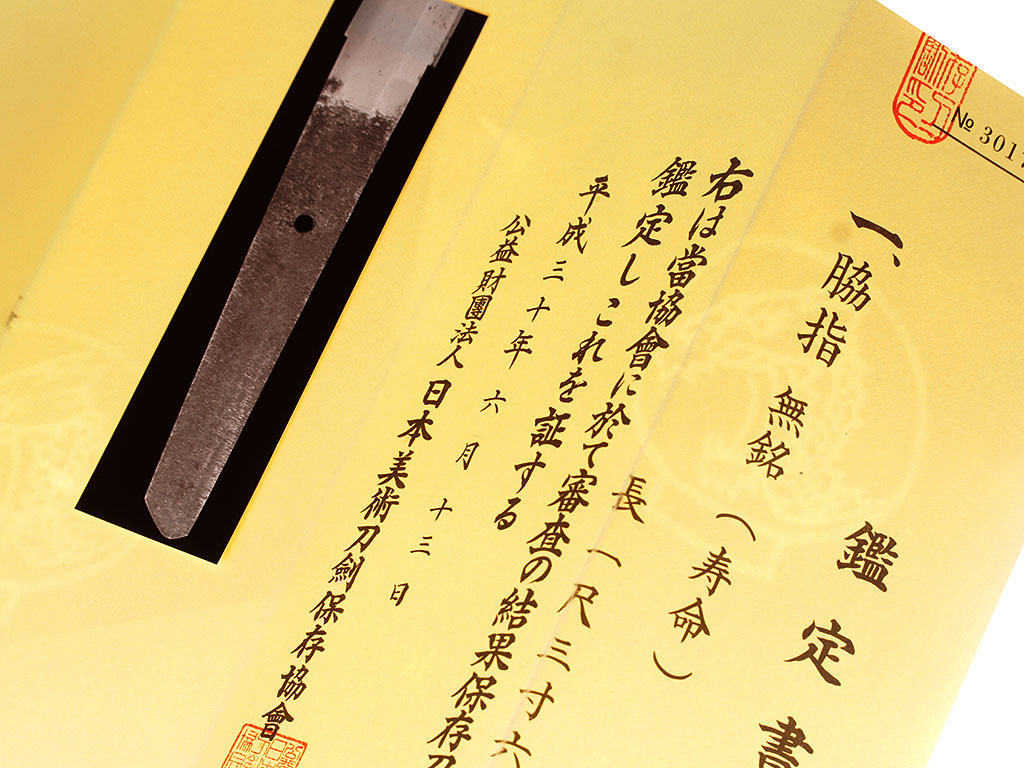 № 3017
鑑定書
一、脇指 無銘（寿命）
長一尺三寸六
右は當協會に於て審査の結果保存刀
鑑定しこれを証する
平成三十年六月十三日
公益財團法人日本美術刀劍保存協會